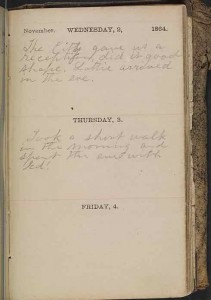 November. WEDNESDAY, 2, 1864.
The City gave us a
reception, did it good
shape. 
on the eve.
THURSDAY, 3.
Took a short walk
in the morning and
spent the
Ed.
FRIDAY, 4.